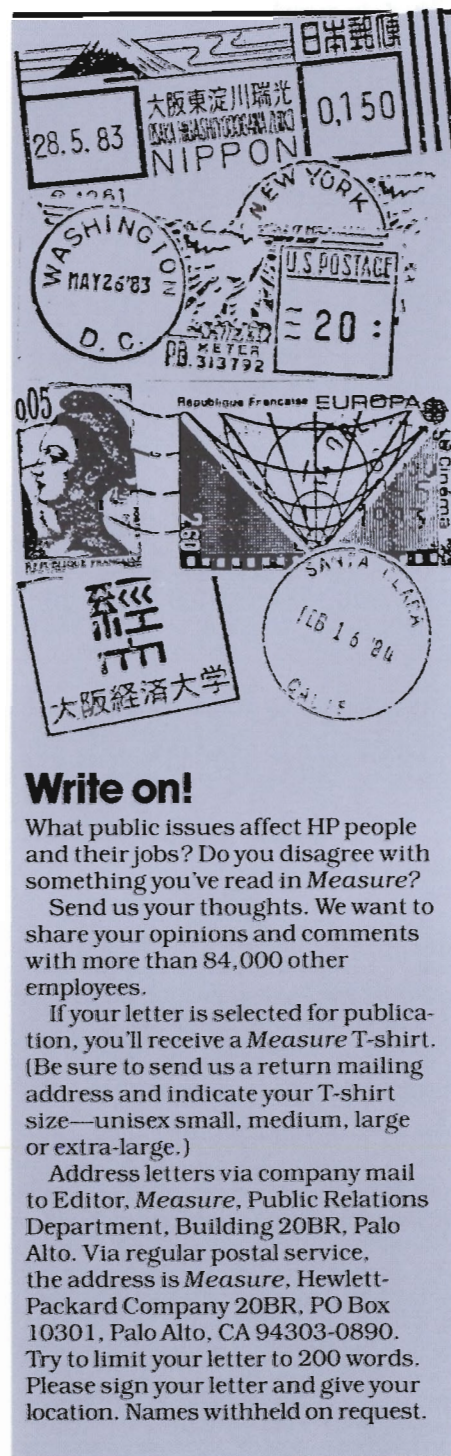 日本郵便
28.5.83
大阪東淀川瑞光
OSAKA HIGASHIYODOGAWA ZUIKO
NIPPON
0,150
NEW YORK
WASHINGTON
MAY 26 '83
D. C.
U.S. POSTAGE
20
PB. METER
313792
0,05
REPUBLIQUE FRANCAISE
République Francaise EUROPA
Cinéma
2,60
大阪経済大学
SANTA CLARA
FEB 16 '84
CALIF
Write on!
What public issues affect HP people
and their jobs? Do you disagree with
something you've read in Measure?
Send us your thoughts. We want to
share your opinions and comments
with more than 84,000 other
employees.
If your letter is selected for publica-
tion, you'll receive a Measure T-shirt.
(Be sure to send us a return mailing
address and indicate your T-shirt
size—unisex small, medium, large
or extra-large.)
Address letters via company mail
to Editor, Measure, Public Relations
Department, Building 20BR, Palo
Alto. Via regular postal service,
the address is Measure, Hewlett-
Packard Company 20BR, PO Box
10301, Palo Alto, CA 94303-0890.
Try to limit your letter to 200 words.
Please sign your letter and give your
location. Names withheld on request.